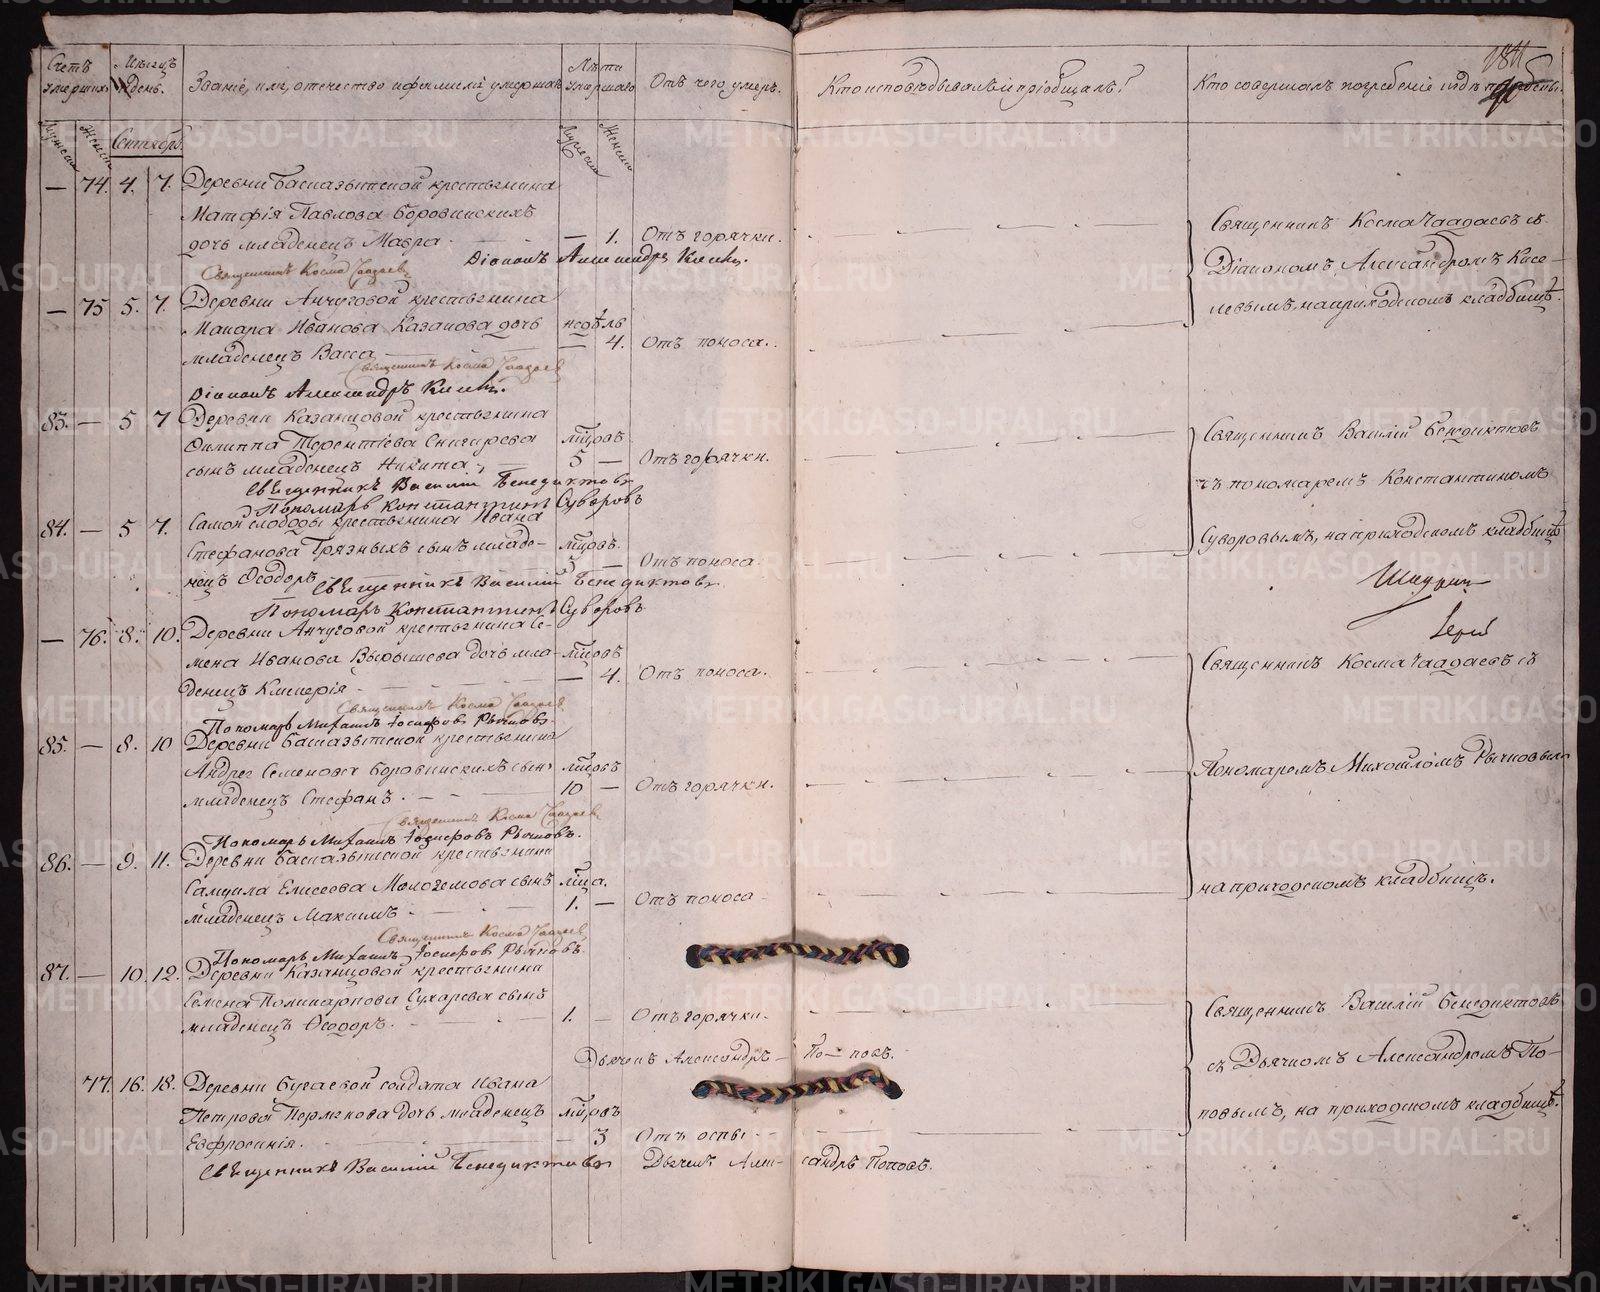 Счетъ умершихъ
Мѣсяцъ и день.
Званіе, имя, отечество и фамилія умершаго
Лѣта умершаго
Отъ чего умеръ.
Кто исповѣдывалъ и пріобщалъ?
Кто совершалъ погребеніе и гдѣ погребены.
Мужеск
Женск
Сентябрь.
Мужеск
Женск
— 74. 4. 7. Деревни Басказытской крестьянина
Матфія Павлова Боровинскихъ
дочь младенецъ Мавра. — 1. Отъ горячки.
Діаконъ Александръ Кисел.
Священникъ Косма Чаадаевъ
— 75 5. 7. Деревни Анчуговой крестьянина
Макара Иванова Казакова дочь недѣль
младенецъ Васса — 4. Отъ поноса.
Священникъ Косма Чаадаев
Діаконъ Александръ Кисел.
Священникъ Косма Чаадаевъ съ
Діакономъ Александромъ Кисе-
левымъ, на приходскомъ кладбищѣ.
83. — 5 7 Деревни Казанцовой крестьянина
Филиппа Терентіева Снигирева мцовъ
сынъ младенецъ Никита. 5 — Отъ горячки.
Священникъ Василій Бенедиктовъ
Пономарь Константинъ Суворовъ
84. — 5 7. Самой слободы крестьянина Ивана
Стефанова Грязныхъ сынъ младе- мцовъ.
нецъ Ѳеодоръ 3 — Отъ поноса.
Священникъ Василій Бенедиктовъ
Пономарь Константинъ Суворовъ
Священникъ Василій Бенедиктовъ
съ пономаремъ Константиномъ
Суворовымъ, на приходскомъ кладбищѣ
— 76. 8. 10. Деревни Анчуговой крестьянина Се-
мена Иванова дочь мла- мцовъ
денецъ — 4. Отъ поноса.
Священникъ Косма Чаадаев
Пономарь Михаилъ Іосифовъ Рычковъ
85. — 8. 10 Деревни Басказытской крестьянина
Андрея Семенова Боровинскихъ сынъ мцовъ
младенецъ Стефанъ. 10 — Отъ горячки.
Священникъ Косма Чаадаев
Пономарь Михаилъ Іосифовъ Рычковъ.
86. — 9. 11. Деревни Басказытской крестьянина
Самуила Елисеева Молоземова сынъ мца.
младенецъ Максимъ. 1. — Отъ поноса
Священникъ Косма Чаадаев
Пономарь Михаилъ Іосифов Рычковъ.
Священникъ Косма Чаадаевъ съ
Пономаремъ Михаиломъ Рычковымъ
на приходскомъ кладбищѣ.
87. — 10. 12. Деревни Казанцовой крестьянина
Семена Поликарпова Сухарева сынъ
младенецъ Ѳеодоръ. 1. — Отъ горячки.
Дьячекъ Александръ По— повъ.
77. 16. 18. Деревни Бугаевой солдата Ивана
Петрова Пермякова дочь младенецъ мцовъ
Евфросинія. — 3 Отъ оспы.
Священникъ Василій Бенедиктовъ Дьячекъ Алек- сандръ Поповъ.
Священникъ Василій Бенедиктовъ
съ Дьячкомъ Александромъ По-
повымъ, на приходскомъ кладбищѣ.
METRIKI.GASO-URAL.RU